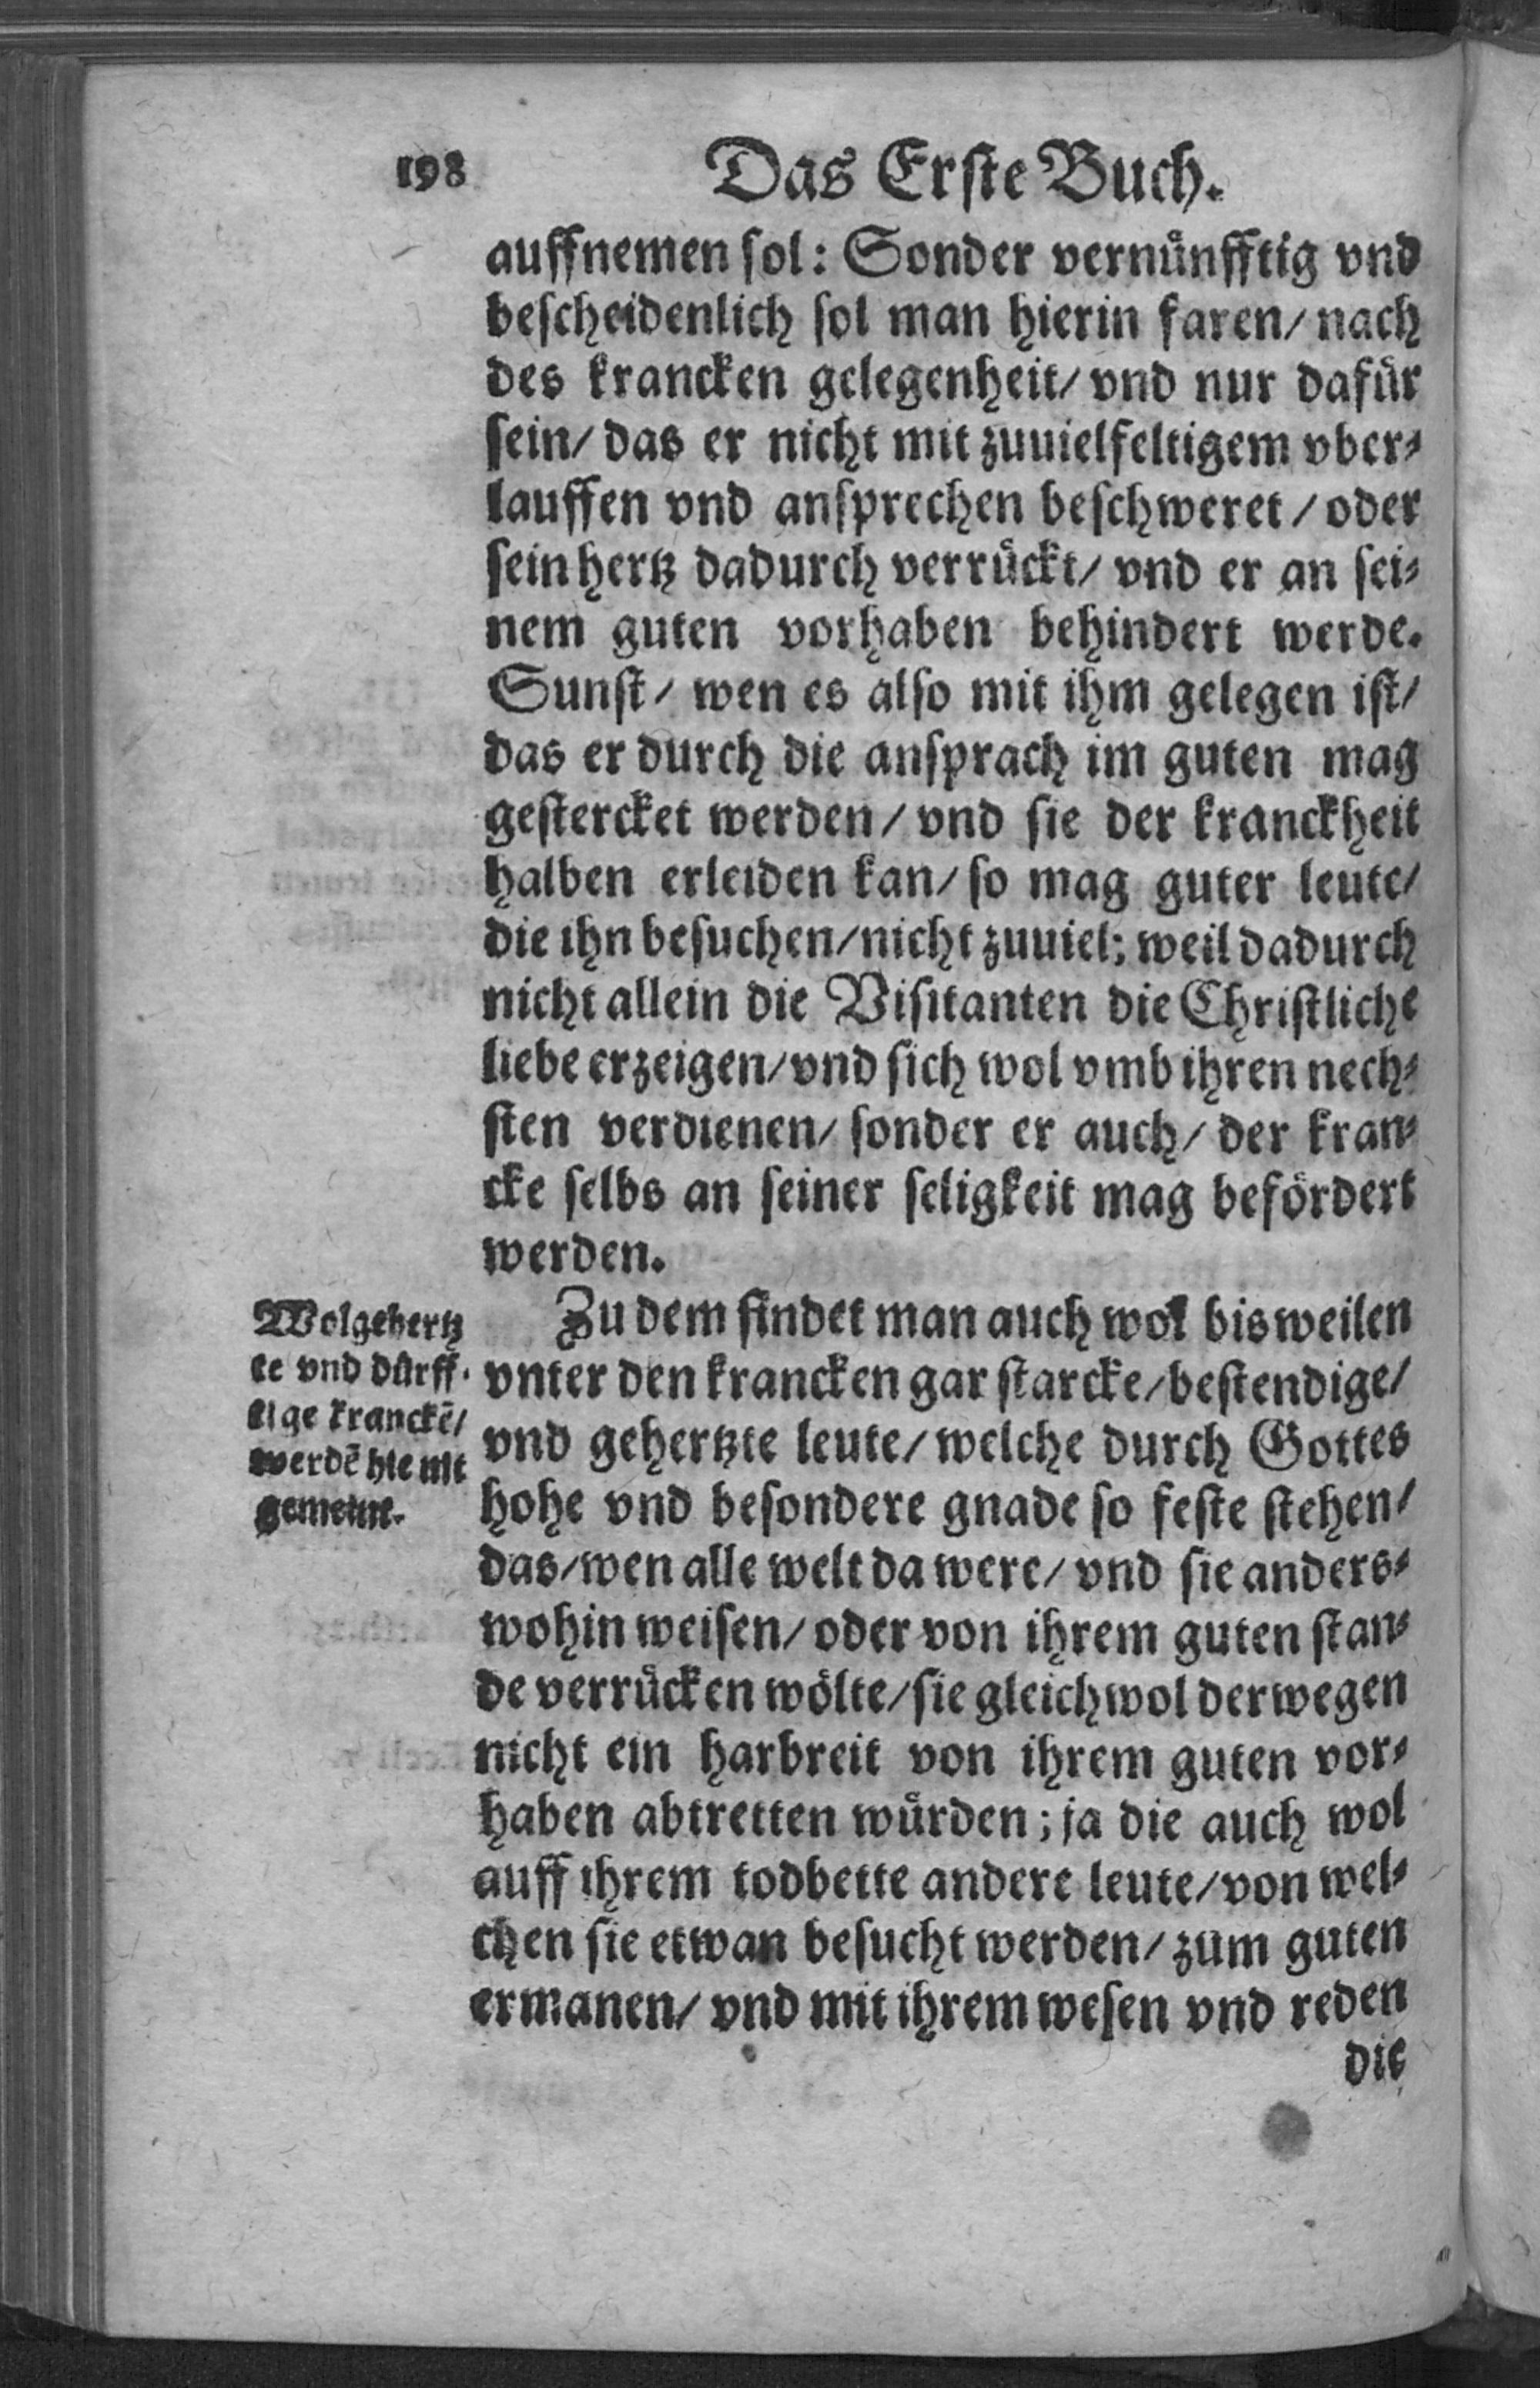 198 Das Erste Buch.
auffnemen sol: Sonder vernünfftig vnd
bescheidenlich sol man hierin faren/ nach
des krancken gelegenheit/ vnd nur dafür
sein/ das er nicht mit zuuielfeltigem vber⸗
lauffen vnd ansprechen beschweret / oder
sein hertz dadurch verrückt/ vnd er an sei⸗
nem guten vorhaben behindert werde.
Sunst/ wen es also mit ihm gelegen ist/
das er durch die ansprach im guten mag
gestercket werden/ vnd sie der kranckheit
halben erleiden kan/ so mag guter leute/
die ihn besuchen/ nicht zuuiel; weil dadurch
nicht allein die Visitanten die Christliche
liebe erzeigen/ vnd sich wol vmb ihren nech⸗
sten verdienen/ sonder er auch/ der kran⸗
cke selbs an seiner seligkeit mag befördert
werden.
Zu dem findet man auch wol bisweilen
vnter den krancken gar starcke/ bestendige/
vnd gehertzte leute/ welche durch Gottes
hohe vnd besondere gnade so feste stehen/
das/ wen alle welt da were/ vnd sie anders⸗
wohin weisen/ oder von ihrem guten stan⸗
de verrücken wölte/ sie gleichwol derwegen
nicht ein harbreit von ihrem guten vor⸗
haben abtretten würden; ja die auch wol
auff ihrem todbette andere leute/ von wel⸗
chen sie etwan besucht werden/ zum guten
ermanen/ vnd mit ihrem wesen vnd reden
die
Wolgehertz
te vnd dürff⸗
tige kranckē/
werdē hie nit
gemeine.